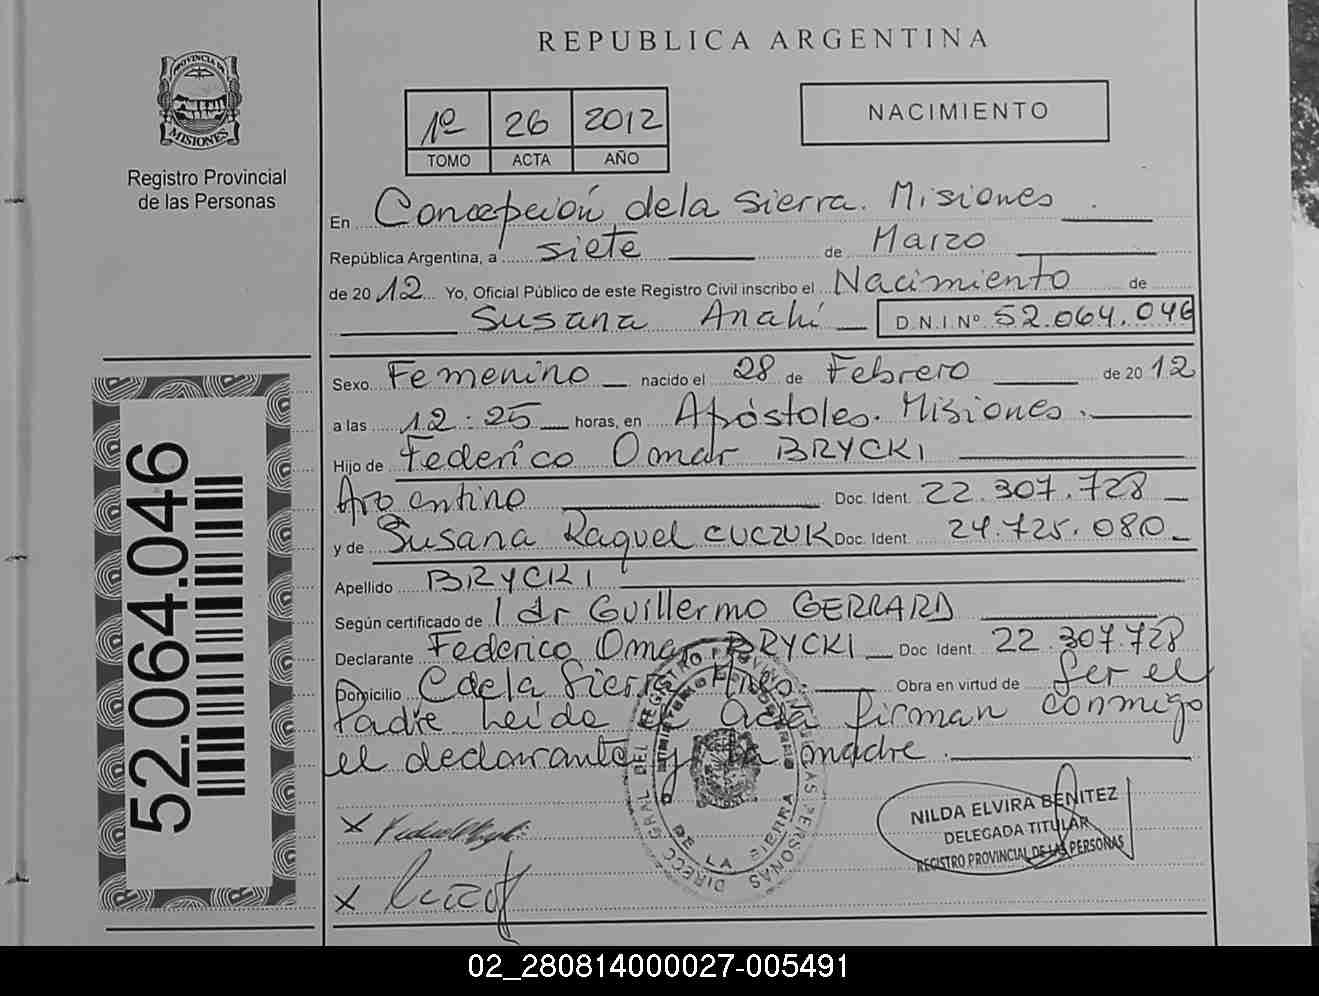 REPUBLICA ARGENTINA
PROVINCIA DE
MISIONES
Registro Provincial
de las Personas
1º 26 2012
TOMO ACTA AÑO
NACIMIENTO
En Concepción de la Sierra. Misiones.
República Argentina, a siete de Marzo
de 2012 Yo, Oficial Público de este Registro Civil inscribo el Nacimiento de
Susana Anahí D.N.I.Nº 52.064.046
Sexo Femenino nacido el 28 de Febrero de 2012
a las 12:25 horas, en Apóstoles. Misiones.
Hijo de Federico Omar BRYCKI
Argentino Doc. Ident. 22.307.728
y de Susana Raquel CUCZUK Doc. Ident. 24.725.080
Apellido BRYCKI
Según certificado de dr Guillermo GERRARD
Declarante Federico Omar BRYCKI Doc. Ident. 22.307.728
Domicilio C de la Sierra Mnes. Obra en virtud de Ser el
Padre Leída el Acta firman conmigo
el declarante y la madre.
52.064.046
X
X
DIRECC GRAL DEL REGISTRO PROVINCIAL DE LAS PERSONAS
DE LA SIERRA
NILDA ELVIRA BENITEZ
DELEGADA TITULAR
REGISTRO PROVINCIAL DE LAS PERSONAS
02_280814000027-005491